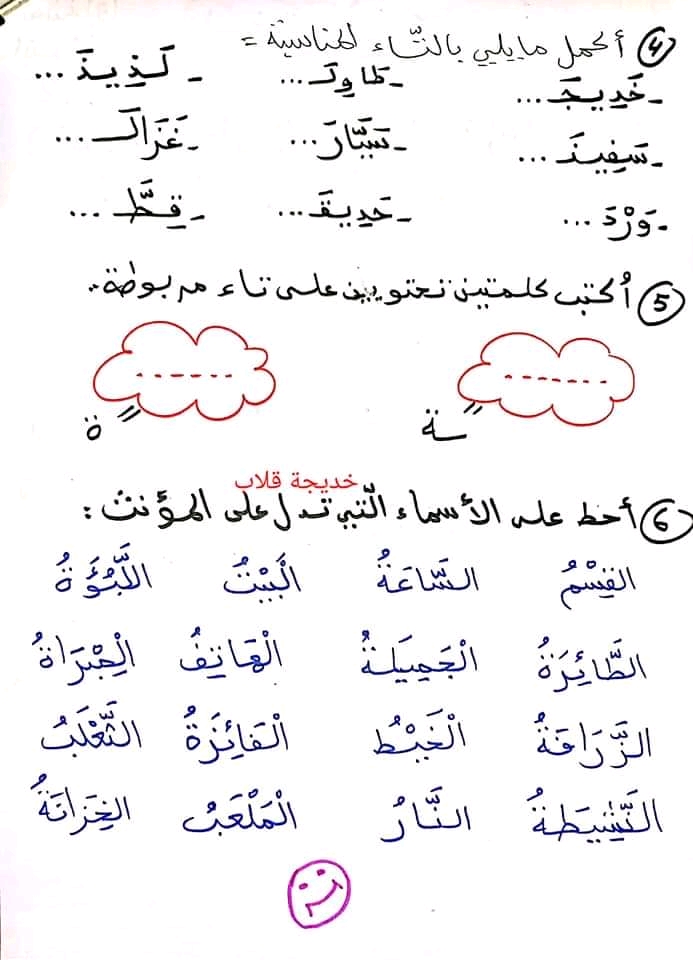 4 أكمل ما يلي بالتّاء المناسبة =
- خَدِيجَـ... - طَاوِلَـ... - لَذِيذَ ...
- سَفِينَـ ... - سَيَّارَ... - غَزَالَـ ...
- وَرْدَ ... - حَدِيقَـ... - قِطَّـ ...
5 أُكتب كلمتين تحتويين على تاء مربوطة..
........ ........
ـة ة
خديجة قلاب
6 أحط على الأسماء الّتي تدل على المؤنث :
القِسْمُ السَّاعَةُ الْبَيْتُ اللَّبُؤَةُ
الطَّائِرَةُ الْجَمِيلَةُ الْهَاتِفُ الْمِبْرَاةُ
الزَّرَافَةُ الْخَيْطُ الْفَائِزَةُ الثَّعْلَبُ
النَّشِيطَةُ النَّارُ الْمَلْعَبُ الخِزَانَةُ